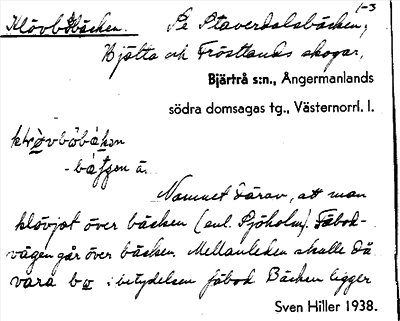 1-3
Klövbobäcken. Se Staverdalsbäcken;
Bjälta och Fröstlands skogar,
Bjärtrå s:n., Ångermanlands
södra domsagas tg., Västernorrl. l.
Namnet därav, att man
klövjat över bäcken (enl. Sjöholm). Fäbod-
vägen går över bäcken. Mellanleden skulle då
vara bo i betydelsen fäbod Bäcken ligger
Sven Hiller 1938.